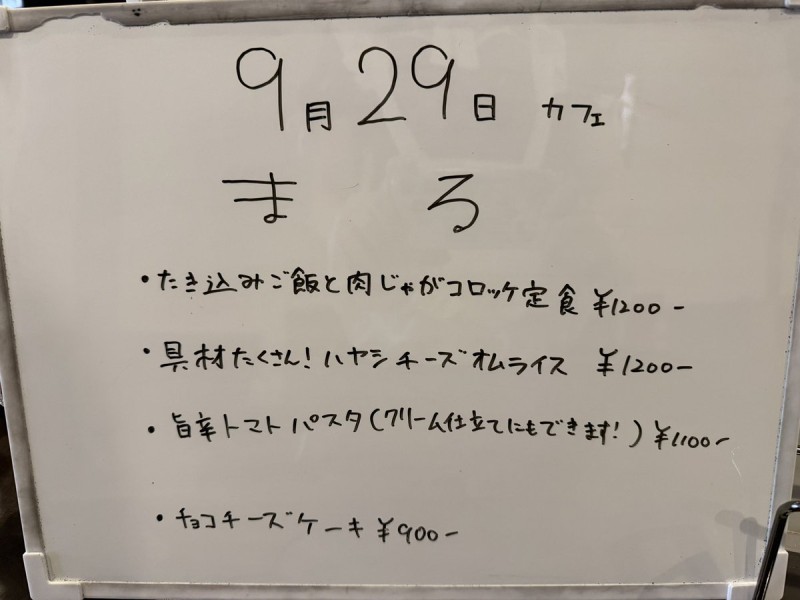 9月29日 カフェ
まろ
・たき込みご飯と肉じゃがコロッケ定食 ¥1200-
・具材たくさん!ハヤシチーズオムライス ¥1200-
・旨辛トマトパスタ(クリーム仕立てにもできます!) ¥1100-
・チョコチーズケーキ ¥900-